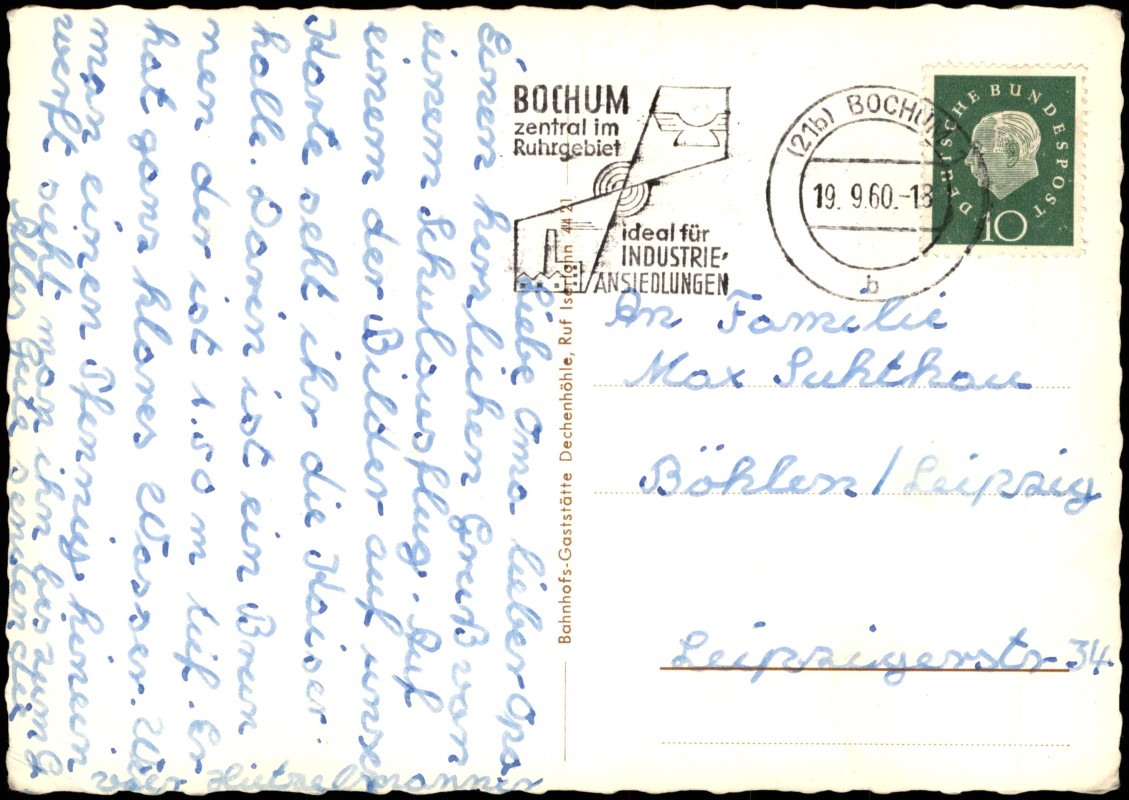 Liebe Oma lieber Opa
Einen herrlichen Gruß von
einem Schulausflug. Auf
einem der Bilder auf unse
Karte seht ihr die Kaiser
halle. Daren ist ein Brun
nen der ist 1.50 m tief. Er
hat ganz klares Wasser. Wen
man einen Pfennig hinein
wirft sieht man ihn bis zum G
Alles Gute senden die
vier Hützelmänner
BOCHUM
zentral im
Ruhrgebiet
ideal für
INDUSTRIE-
ANSIEDLUNGEN
(21b) BOCHUM
19. 9.60.-18
b
DEUTSCHE BUNDESPOST
10
Bahnhofs-Gaststätte Dechenhöhle, Ruf Iserlohn 44 21
An Familie
Max Suhthau
Böhlen / Leipzig
Leipzigerstr 34